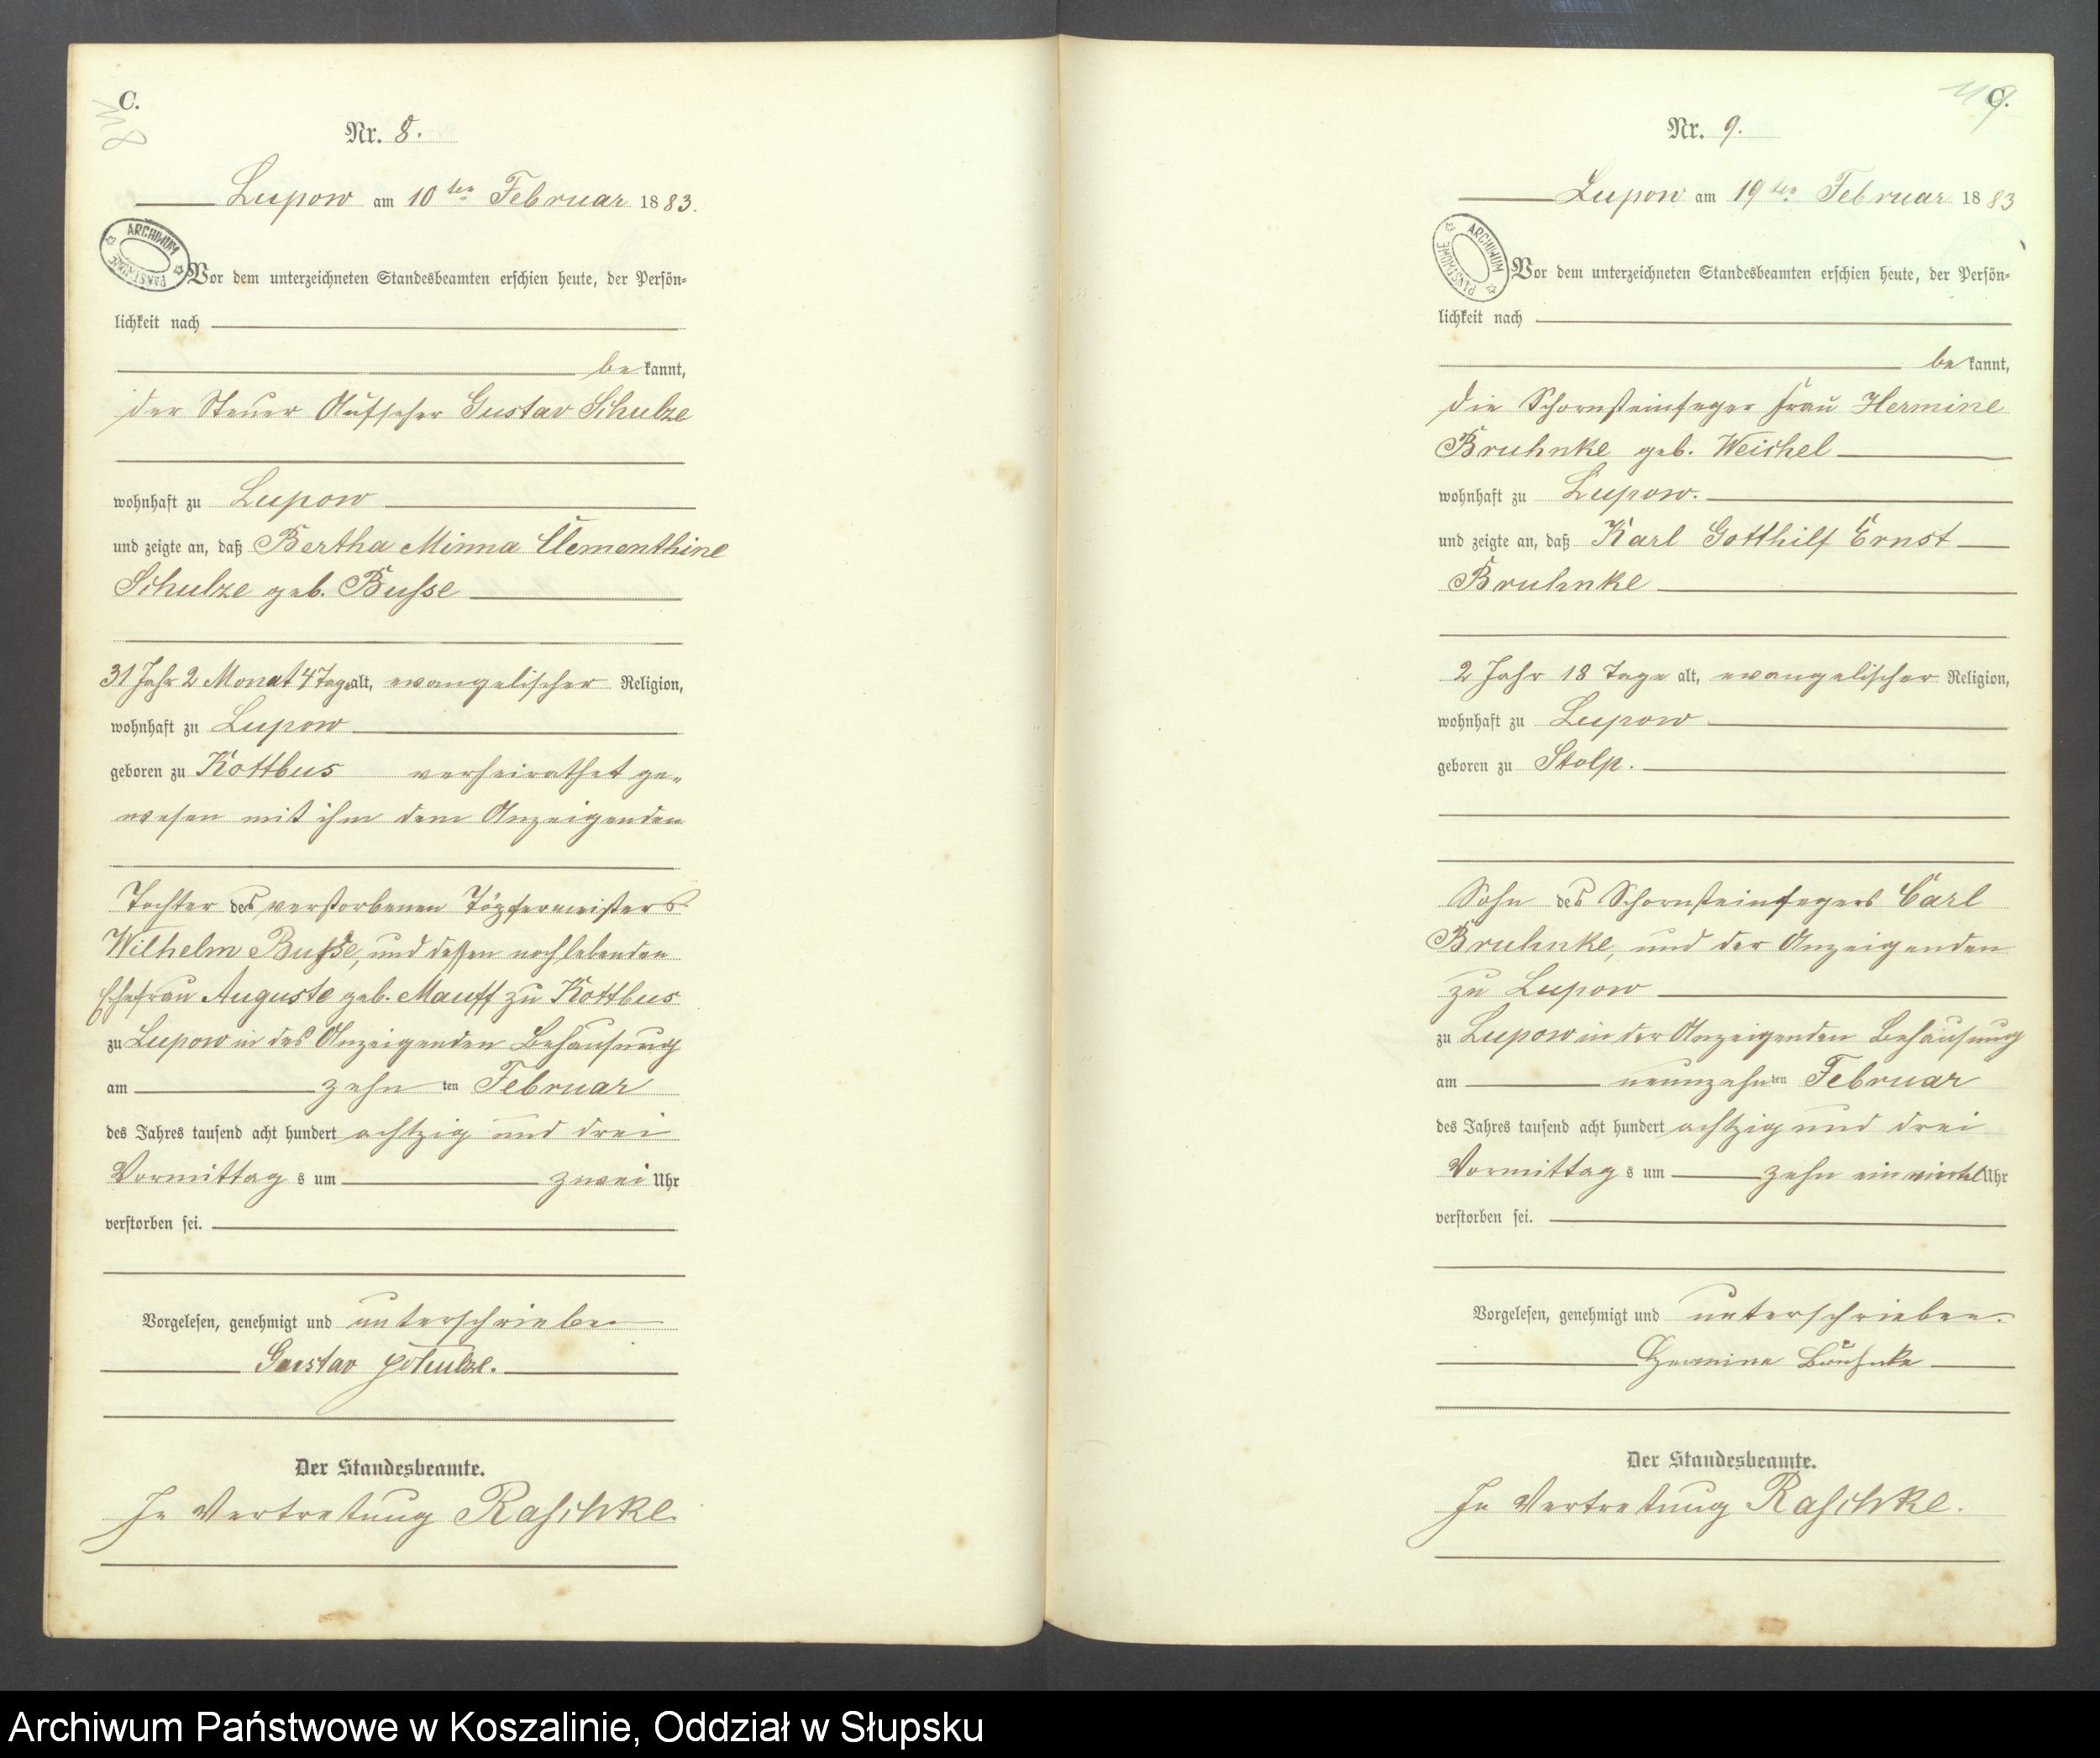 C.
118
Nr. 8.
Lupow am 10ten Februar 1883.
ARCHIWUM PAŃSTWOWE
Vor dem unterzeichneten Standesbeamten erschien heute, der Persön-
lichkeit nach
bekannt,
der Steuer Aufseher Gustav Schulze
wohnhaft zu Lupow
und zeigte an, daß Bertha Minna Clementhine
Schulze geb. Busse
31 Jahr 2 Monat 4 Tage alt, evangelischer Religion,
wohnhaft zu Lupow
geboren zu Kottbus verheirathet ge-
wesen mit ihm dem Anzeigenden
Tochter des verstorbenen Töpfermeisters
Wilhelm Busse, und dessen noch lebenden
Ehefrau Auguste geb. Mauff zu Kottbus
zu Lupow in des Anzeigenden Behausung
am zehnten Februar
des Jahres tausend acht hundert achtzig und drei
Vormittags um zwei Uhr
verstorben sei.
Vorgelesen, genehmigt und unterschrieben
Gustav Schulze.
Der Standesbeamte.
In Vertretung Raschke.
C.
119
Nr. 9.
Lupow am 19ten Februar 1883
ARCHIWUM PAŃSTWOWE
Vor dem unterzeichneten Standesbeamten erschien heute, der Persön-
lichkeit nach
bekannt,
die Schornsteinfeger Frau Hermine
Bruhnke geb. Weichel
wohnhaft zu Lupow.
und zeigte an, daß Karl Gotthilf Ernst
Bruhnke
2 Jahr 18 Tage alt, evangelischer Religion,
wohnhaft zu Lupow
geboren zu Stolp.
Sohn des Schornsteinfegers Carl
Bruhnke, und der Anzeigenden
zu Lupow
zu Lupow in der Anzeigenden Behausung
am neunzehnten Februar
des Jahres tausend acht hundert achtzig und drei
Vormittags um zehn ein viertel Uhr
verstorben sei.
Vorgelesen, genehmigt und unterschrieben.
Hermine
Der Standesbeamte.
In Vertretung Raschke.
Archiwum Państwowe w Koszalinie, Oddział w Słupsku